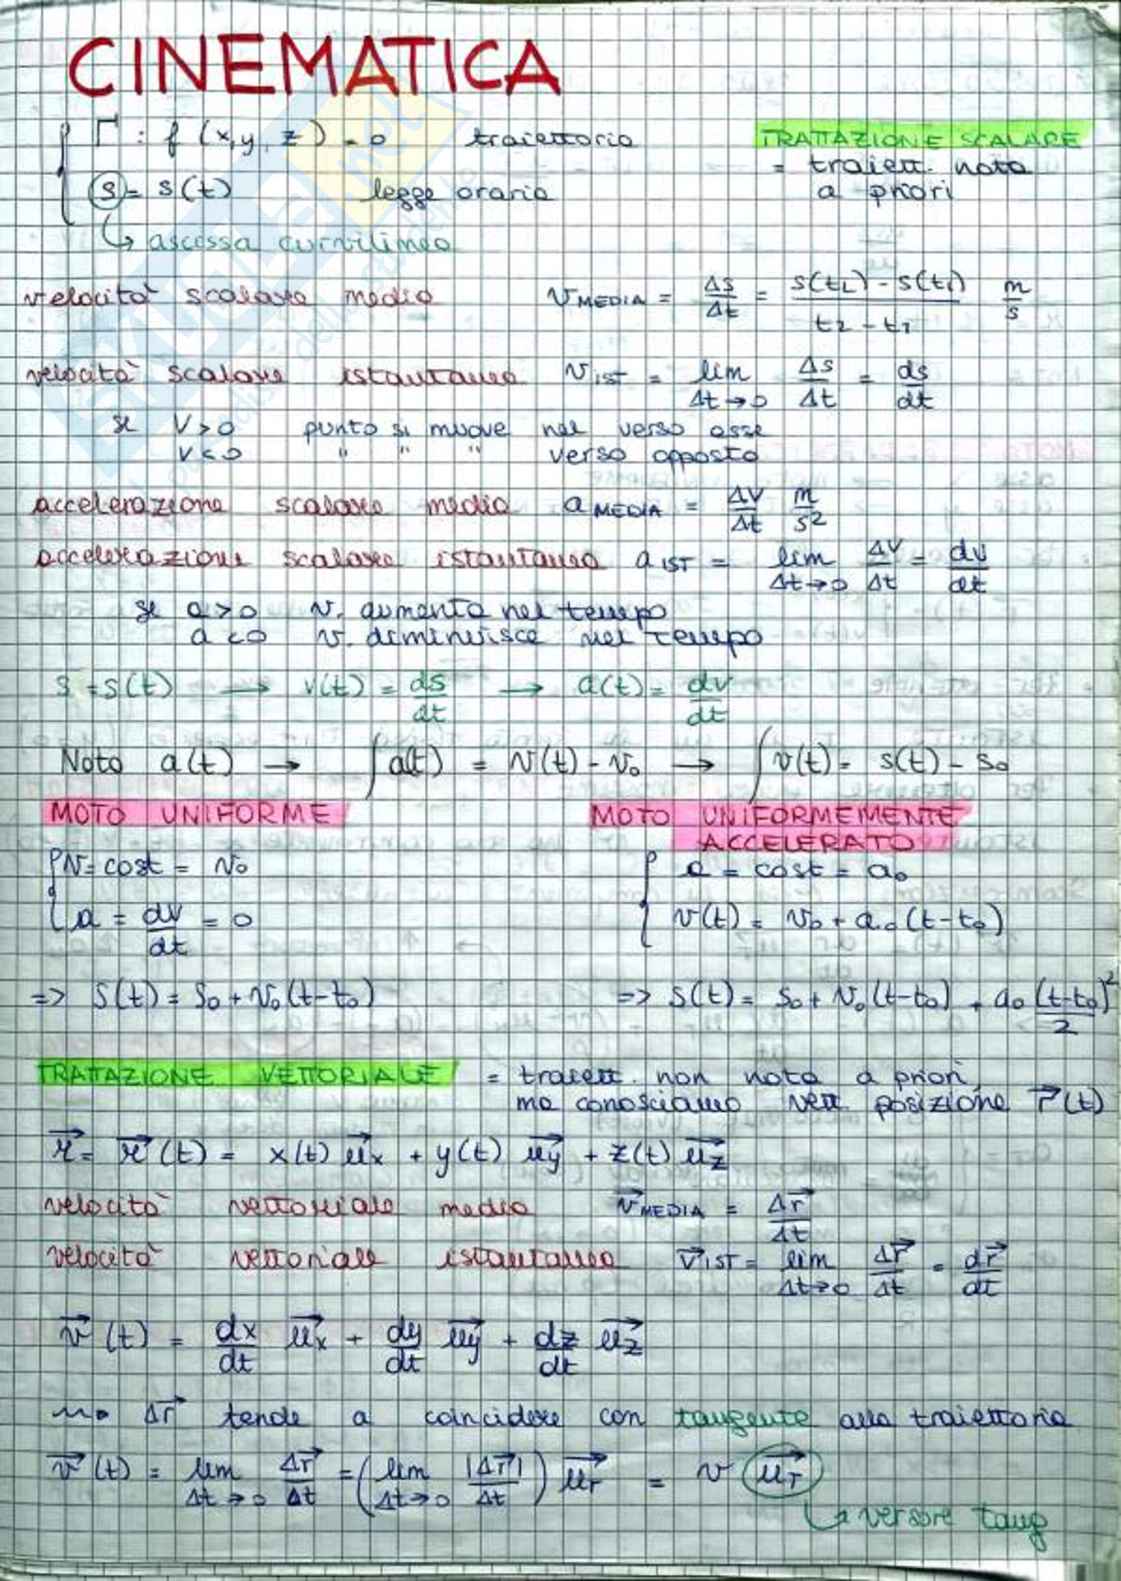 CINEMATICA
Γ : f (x,y,z) = 0 traiettoria
TRATTAZIONE SCALARE
= traiett. nota
a priori
s = s(t) legge oraria
↳ ascissa curvilinea
velocità scalare media v MEDIA = Δs/Δt = (s(t2) - s(t1))/(t2 - t1) m/s
velocità scalare istantanea v IST = lim Δt→0 Δs/Δt = ds/dt
se v > 0 punto si muove nel verso asse
v < 0 " " " verso opposto
accelerazione scalare media a MEDIA = Δv/Δt m/s²
accelerazione scalare istantanea a IST = lim Δt→0 Δv/Δt = dv/dt
se a > 0 v. aumenta nel tempo
a < 0 v. diminuisce nel tempo
s = s(t) → v(t) = ds/dt → a(t) = dv/dt
Noto a(t) → ∫a(t) = v(t) - v₀ → ∫v(t) = s(t) - s₀
MOTO UNIFORME
v = cost = v₀
a = dv/dt = 0
=> s(t) = s₀ + v₀ (t-t₀)
MOTO UNIFORMEMENTE
ACCELERATO
a = cost = a₀
v(t) = v₀ + a₀ (t-t₀)
=> s(t) = s₀ + v₀ (t-t₀) + a₀ (t-t₀)²/2
TRATTAZIONE VETTORIALE = traiett. non nota a priori,
ma conosciamo vett posizione r⃗(t)
r⃗ = r⃗ (t) = x(t) u⃗x + y(t) u⃗y + z(t) u⃗z
velocità vettoriale media v⃗ MEDIA = Δr⃗/Δt
velocità vettoriale istantanea v⃗ IST = lim Δt→0 Δr⃗/Δt = dr⃗/dt
v⃗ (t) = dx/dt u⃗x + dy/dt u⃗y + dz/dt u⃗z
Δr⃗ tende a coincidere con tangente alla traiettoria
v⃗ (t) = lim Δt→0 Δr⃗/Δt = (lim Δt→0 |Δr⃗|/Δt) u⃗r = v u⃗T
↳ versore tang